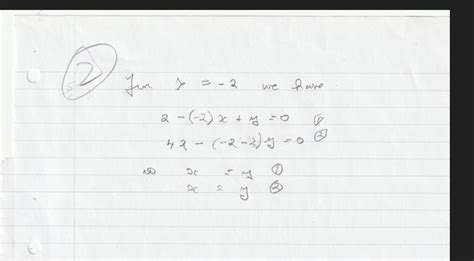 2
For λ = -2 we have
2 - (-2)x + y = 0 ①
4x - (-2-2)y = 0 ②
so x = y ①
x = y ②